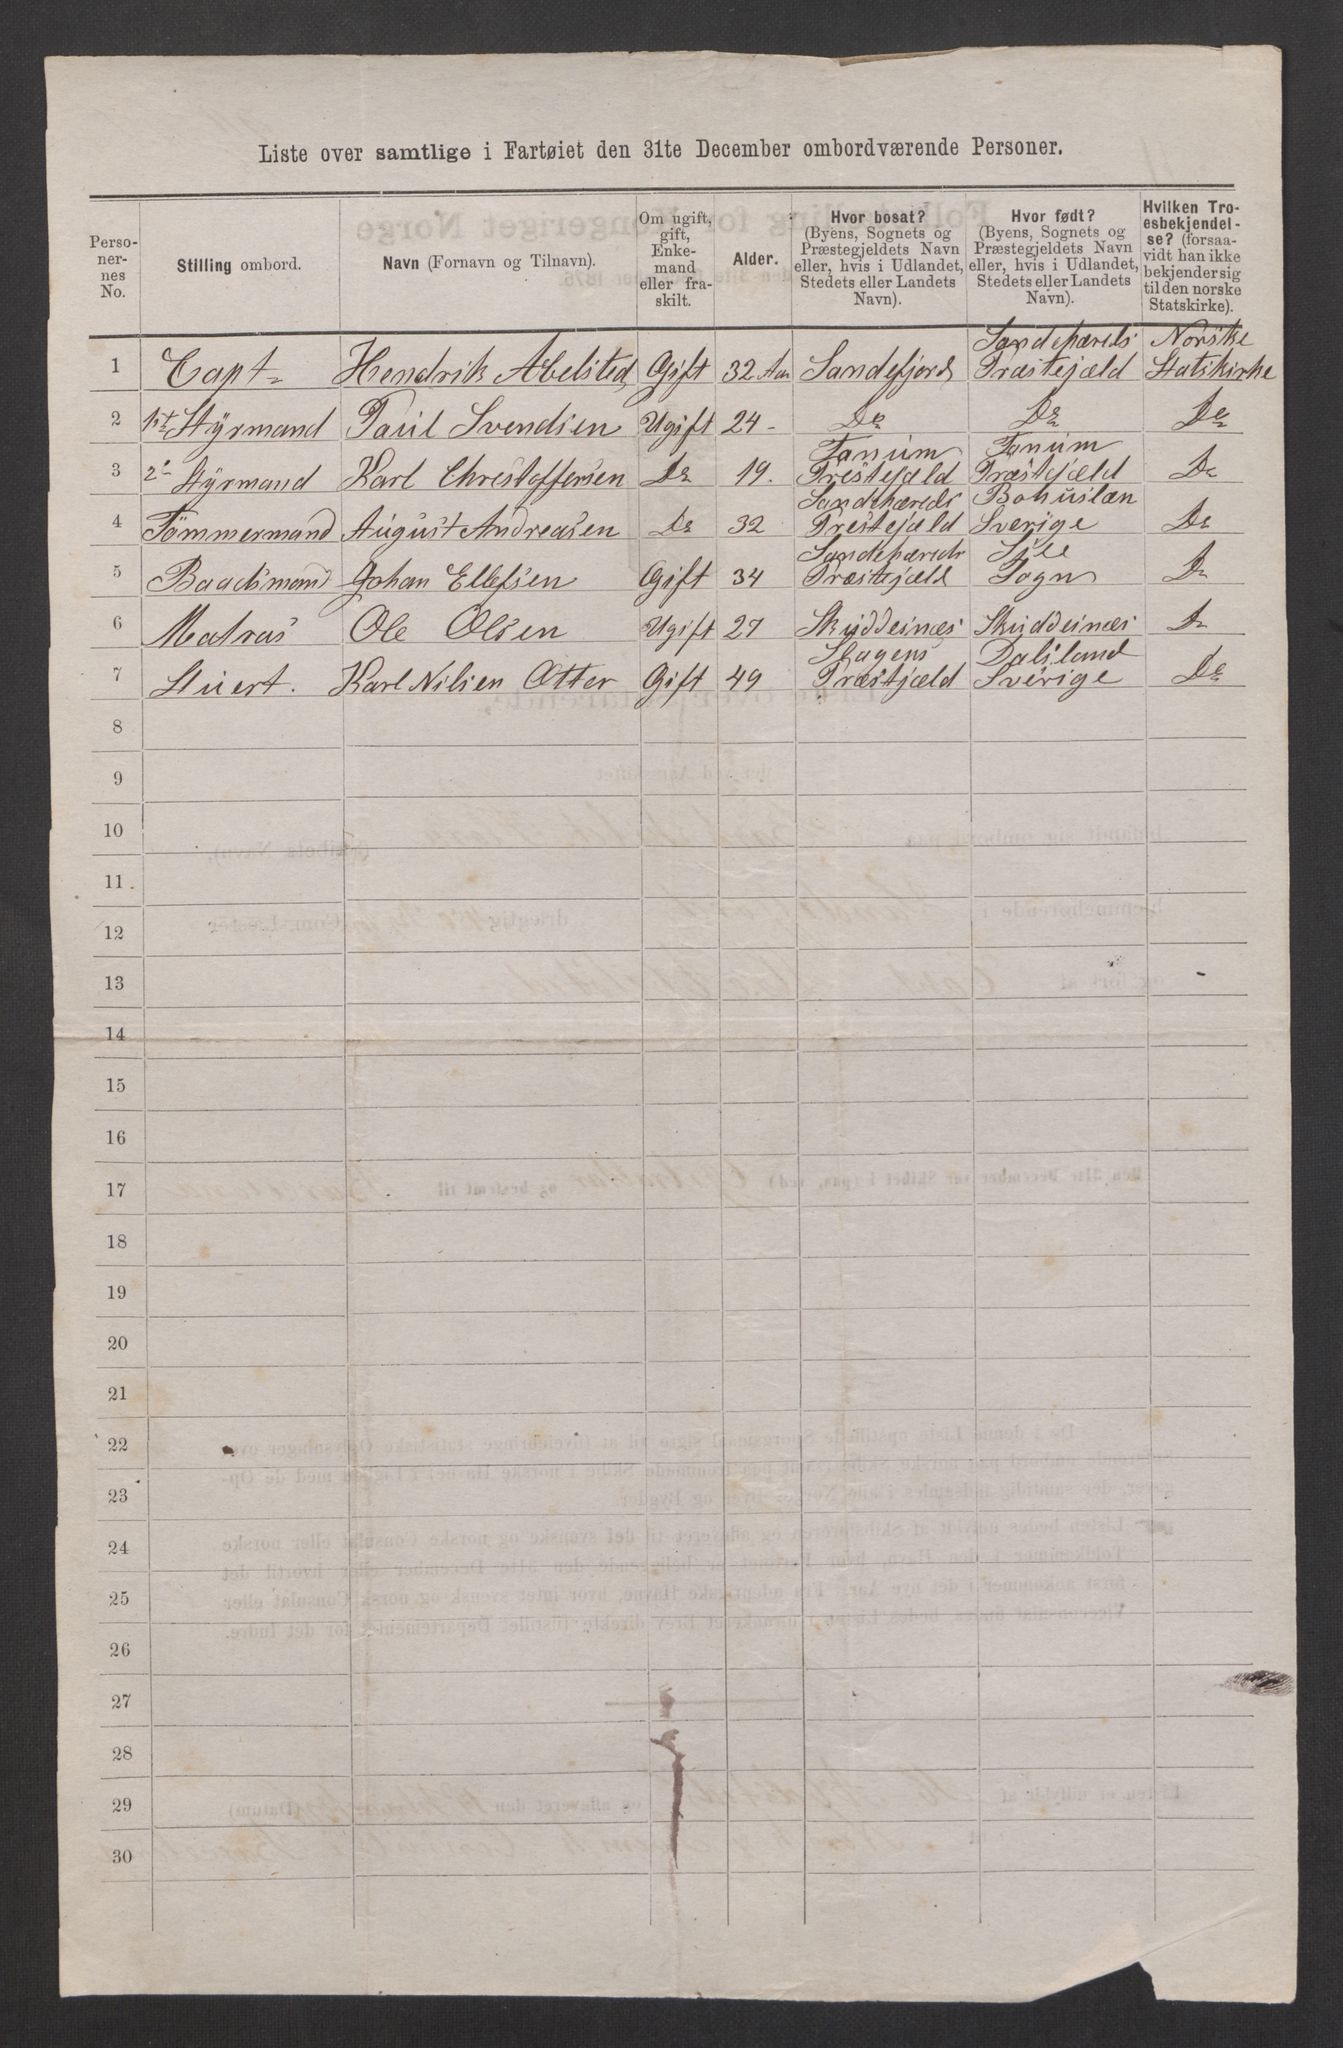 Liste over samtlige i Fartøiet den 31te December ombordværende Personer.
Perso-
ner-
nes
No.
Stilling ombord.
Navn (Fornavn og Tilnavn).
Om ugift,
gift,
Enke-
mand
eller fra-
skilt.
Alder.
Hvor bosat?
(Byens, Sognets og
Præstegjeldets Navn
eller, hvis i Udlandet,
Stedets eller Landets
Navn).
Hvor født?
(Byens, Sognets og
Præstegjeldets Navn
eller, hvis i Udlandet,
Stedets eller Landets
Navn).
Hvilken Tro-
esbekjendel-
se? (forsaa-
vidt han ikke
bekjender sig
til den norske
Statskirke).
1 Capt Hendrik Abelsted Gift 32 Aar Sandefjord Sandeherreds Præstejæld Norske Statskirke
2 1st Styrmand Paul Svendsen Ugift 24 Do Do Do
3 2n Styrmand Karl Chrestoffersen Do 19. Tanum Prestejæld Tanum Præstejæld Do
4 Tömmermand August Andreasen Do 32 Sandehæreds Prestejæld Bohuslæn Sverige Do
5 Baadsmand Johan Ellefsen Gift 34 Sandehæreds Præstejæld Sogn Do
6 Matros Ole Olsen Ugift 27 Skuddesnæs Skuddesnæs Do
7 Stuert. Karl Nilsen Otter Gift 49 Slagens Præstjæld Dalsland Sverige Do
8
9
10
11
12
13
14
15
16
17
18
19
20
21
22
23
24
25
26
27
28
29
30